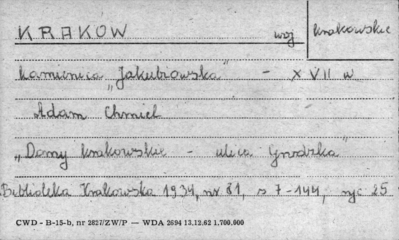 KRAKÓW woj krakowskie
kamienica „Jakubiowska" - XVII w
Adam Chmiel
„Domy krakowskie - ulica Grodzka"
Biblioteka Krakowska 1934, nr 81, s 7-144, ryc 25
CWD - B-15-b, nr 2827/ZW/P — WDA 2694 13.12.62 1.700.000